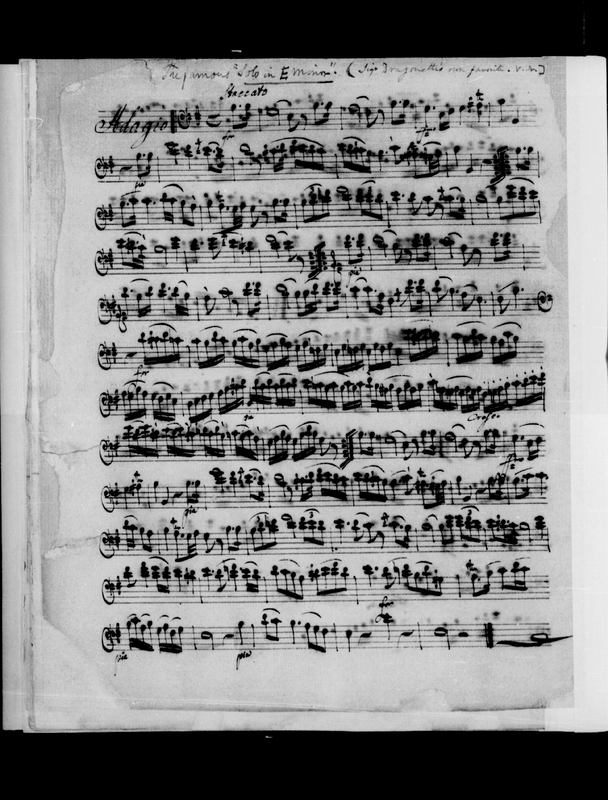 The famous "Solo in E minor". (Sigr Dragonetti's own favorite. V. N.)
Staccato
Adagio
for
pia
pia
for
pia
Cresc.
pia
for
pia
pia